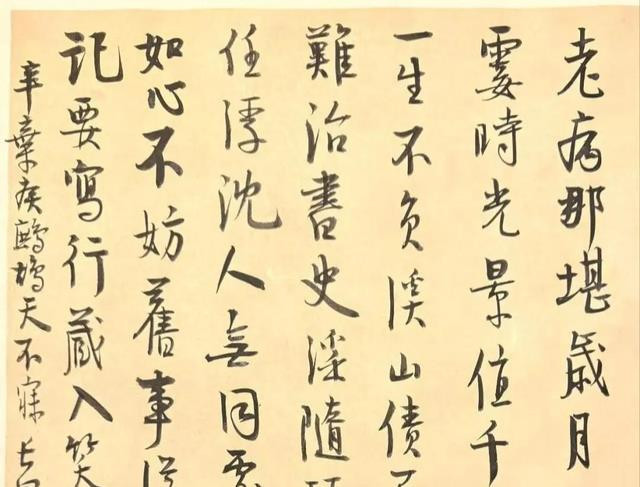 老病那堪歲月
霎時光景值千
一生不負溪山債
難治書史淫隨
任浮沈人無同
如心不妨舊事從
記要寫行藏入笑
辛棄疾鷓鴣天不寐